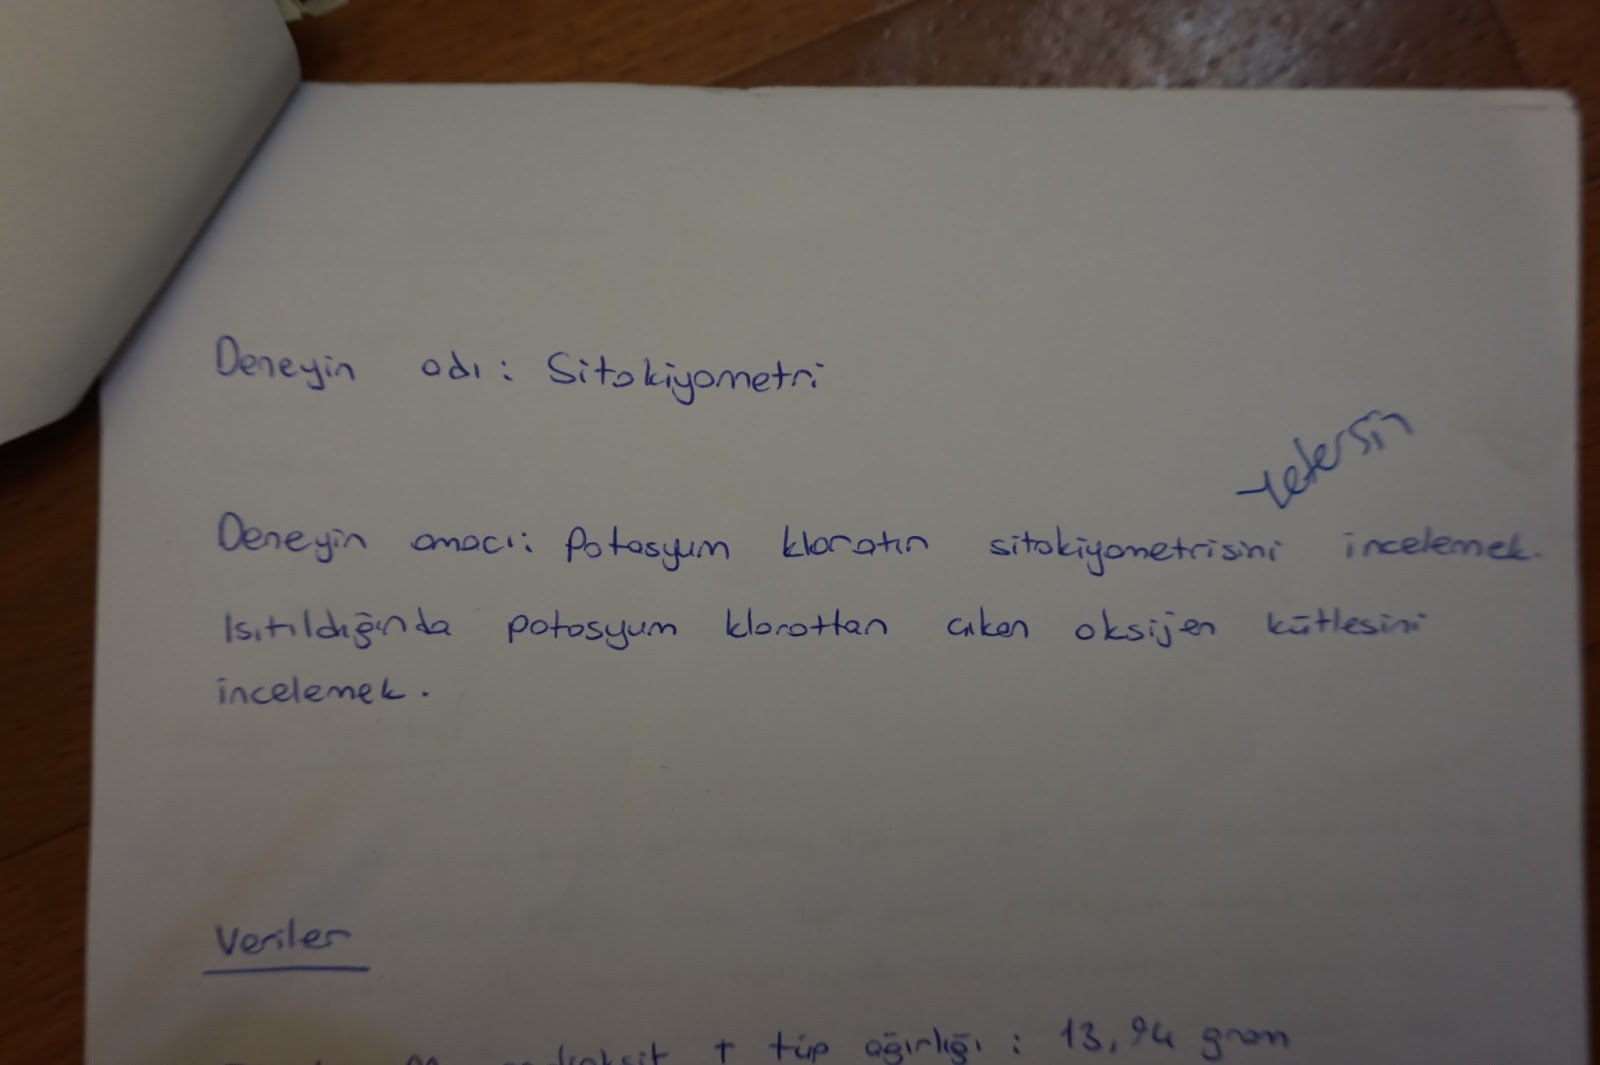 Deneyin adı: Sitokiyometri
Deneyin amacı: Potasyum kloratın sitokiyometrisini incelemek.
Isıtıldığında potasyum klorattan cıkan oksijen kütlesini
incelemek.
Veriler
+ tüp ağırlığı : 13,94 gram